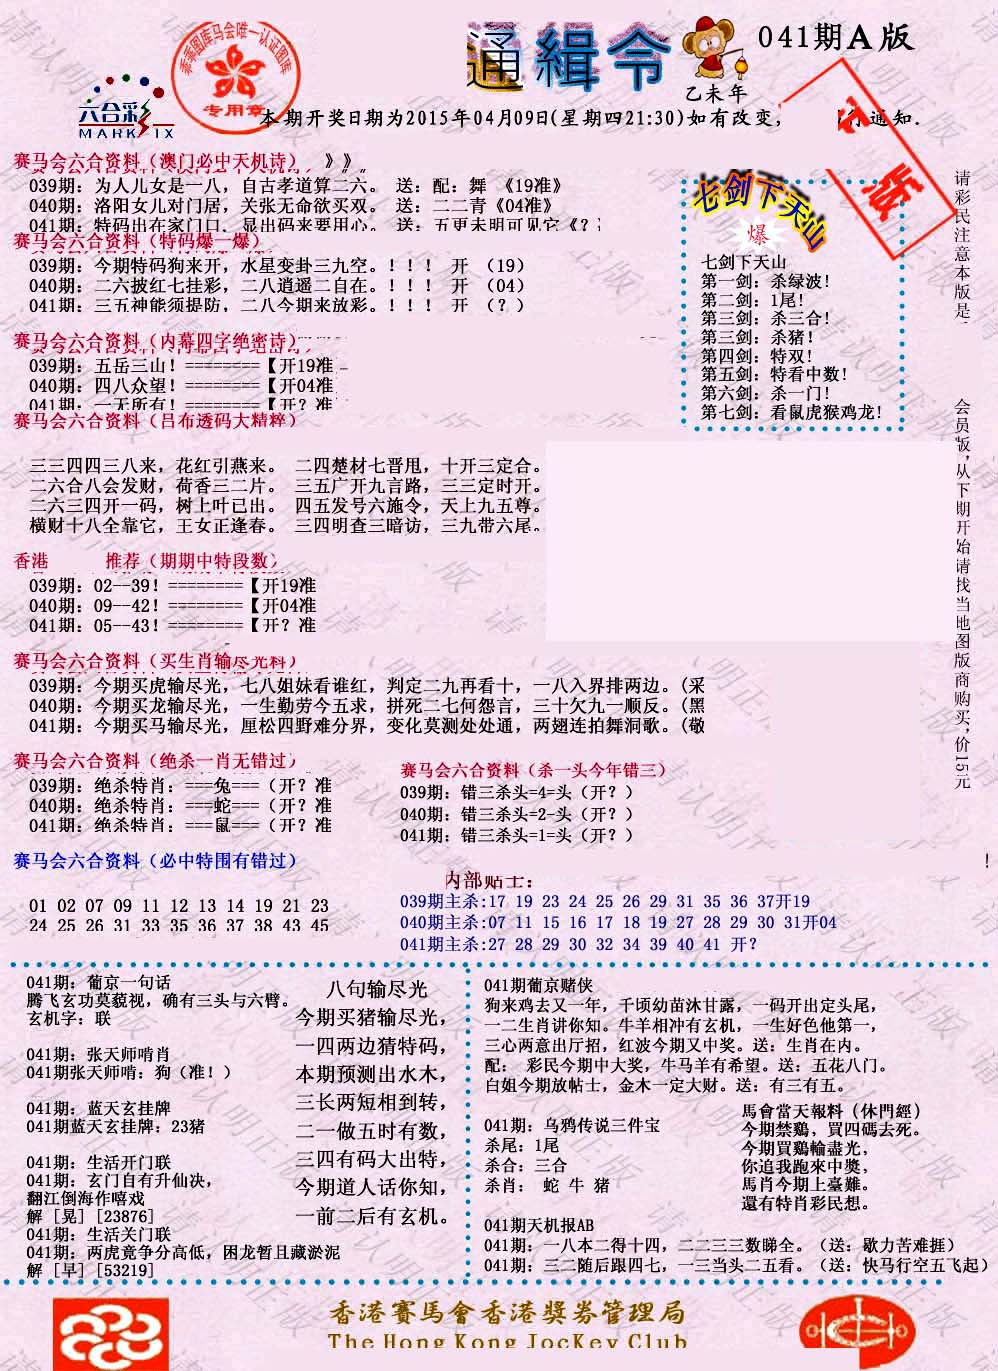 通緝令
041期A版
乙未年
乖乖图库马会唯一认证图库
专用章
六合彩
MARK SIX
本期开奖日期为2015年04月09日(星期四21:30)如有改变,
通知.
赛马会六合资料（澳门必中天机诗） 》》
039期: 为人儿女是一八，自古孝道算二六。 送：配：舞 《19准》
040期: 洛阳女儿对门居，关张无命欲买双。 送：二二青《04准》
041期: 特码出在家门口，显出码来要用心。 送：五更未明可见它《?》
赛马会六合资料（特码爆一爆）
039期: 今期特码狗来开，水星变卦三九空。！！！ 开 （19）
040期: 二六披红七挂彩，二八逍遥二自在。！！！ 开 （04）
041期: 三五神能须提防，二八今期来放彩。！！！ 开 （？）
赛马会六合资料（内幕四字绝密诗）
039期: 五岳三山！========【开19准
040期: 四八众望！========【开04准
041期: 一无所有！========【开？准
七剑下天山
爆
七剑下天山
第一剑: 杀绿波!
第二剑: 1尾!
第三剑: 杀三合!
第三剑: 杀猪!
第四剑: 特双!
第五剑: 特看中数!
第六剑: 杀一门!
第七剑: 看鼠虎猴鸡龙!
请彩民注意本版是
会员版，从下期开始请找当地图版商购买，价15元
赛马会六合资料（吕布透码大精粹）
三三四四三八来，花红引燕来。 二四楚材七晋用，十开三定合。
二六合八会发财，荷香三二片。 三五广开九言路，三三定时开。
二六三四开一码，树上叶已出。 四五发号六施令，天上九五尊。
横财十八全靠它，王女正逢春。 三四明查三暗访，三九带六尾。
香港 推荐（期期中特段数）
039期: 02--39! ========【开19准
040期: 09--42! ========【开04准
041期: 05--43! ========【开？准
赛马会六合资料（买生肖输尽光料）
039期: 今期买虎输尽光，七八姐妹看谁红，判定二九再看十，一八入界排两边。(采
040期: 今期买龙输尽光，一生勤劳今五求，拼死二七何怨言，三十欠九一顺反。(黑
041期: 今期买马输尽光，厘松四野难分界，变化莫测处处通，两翅连拍舞洞歌。(敬
赛马会六合资料（绝杀一肖无错过）
039期: 绝杀特肖: ===兔===（开？准
040期: 绝杀特肖: ===蛇===（开？准
041期: 绝杀特肖: ===鼠===（开？准
赛马会六合资料（杀一头今年错三）
039期: 错三杀头=4=头（开？）
040期: 错三杀头=2-头（开？）
041期: 错三杀头=1=头（开？）
赛马会六合资料（必中特围有错过）
!
01 02 07 09 11 12 13 14 19 21 23
24 25 26 31 33 35 36 37 38 43 45
内部贴士:
039期主杀:17 19 23 24 25 26 29 31 35 36 37开19
040期主杀:07 11 15 16 17 18 19 27 28 29 30 31开04
041期主杀:27 28 29 30 32 34 39 40 41 开?
041期: 葡京一句话
腾飞玄功莫藐视，确有三头与六臂。
玄机字: 联
041期: 张天师啃肖
041期张天师啃: 狗（准！）
041期: 蓝天玄挂牌
041期蓝天玄挂牌: 23猪
041期: 生活开门联
041期: 玄门自有升仙决，
翻江倒海作嘻戏
解 [晃] [23876]
041期: 生活关门联
041期: 两虎竟争分高低，困龙暂且藏淤泥
解 [早] [53219]
八句输尽光
今期买猪输尽光，
一四两边猜特码，
本期预测出水木，
三长两短相到转，
二一做五时有数，
三四有码大出特，
今期道人话你知，
一前二后有玄机。
041期葡京赌侠
狗来鸡去又一年，千顷幼苗沐甘露，一码开出定头尾，
一二生肖讲你知。牛羊相冲有玄机，一生好色他第一，
三心两意出厅招，红波今期又中奖。送：生肖在内。
配： 彩民今期中大奖，牛马羊有希望。送：五花八门。
白姐今期放帖士，金木一定大财。送：有三有五。
041期: 乌鸦传说三件宝
杀尾: 1尾
杀合: 三合
杀肖: 蛇 牛 猪
馬會當天報料（休門經）
今期禁鷄，買四碼去死。
今期買鷄輸盡光，
你追我跑來中獎，
馬肖今期上臺難。
還有特肖彩民想。
041期天机报AB
041期: 一八本二得十四，二二三三数睇全。（送：歇力苦难捱）
041期: 三二随后跟四七，一三当头二五看。（送：快马行空五飞起）
香港賽馬會香港獎券管理局
The Hong Kong Jockey Club